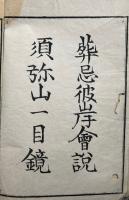 葬忌彼岸會説
須弥山一目鏡